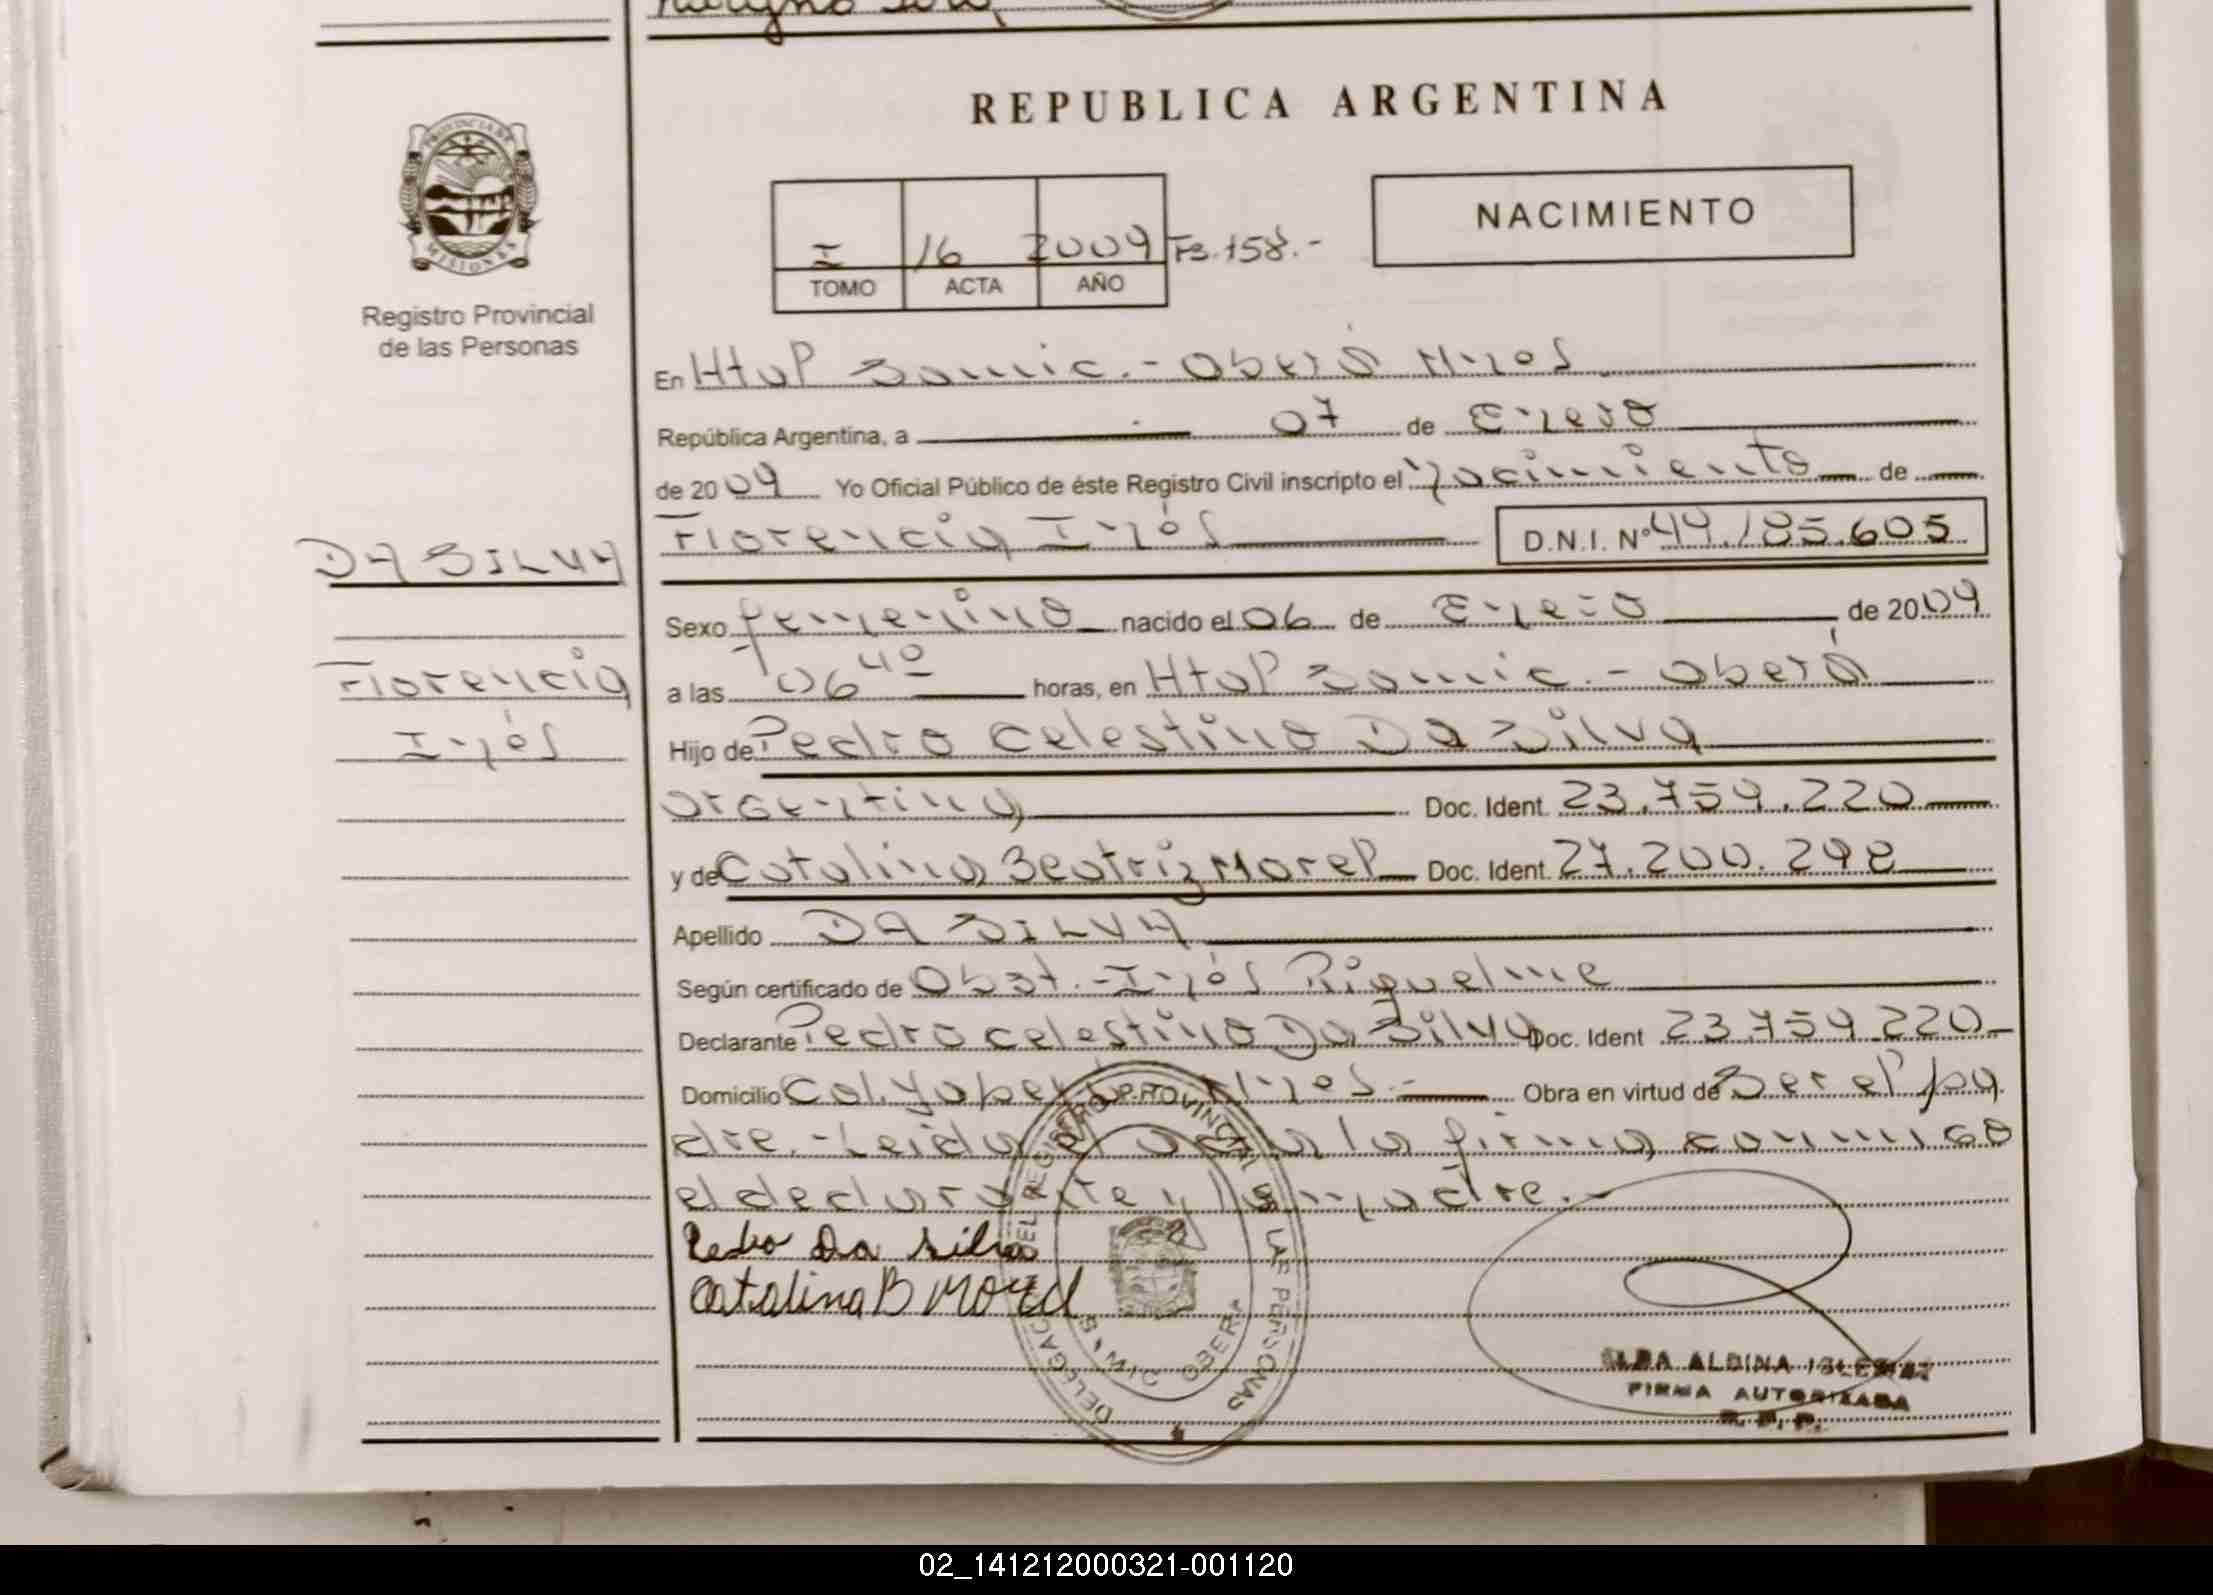 REPUBLICA ARGENTINA
PROVINCIA DE MISIONES
Registro Provincial
de las Personas
NACIMIENTO
I 16 2009 Fs. 158.-
TOMO ACTA AÑO
En Htal Samic.- Oberá Mnes
República Argentina, a 07 de Enero
de 2009 Yo Oficial Público de éste Registro Civil inscripto el Nacimiento de
Florencia Inés D.N.I. Nº 49.185.605
DA SILVA
Florencia
Inés
Sexo femenino nacido el 06 de Enero de 2009
a las 06 40 horas, en Htal Samic.- Oberá
Hijo de Pedro Celestino Da Silva
argentina Doc. Ident. 23.759.220
y de Catalina Beatriz Morel Doc. Ident. 27.200.298
Apellido DA SILVA
Según certificado de Obst.- Inés Riquelme
Declarante Pedro Celestino Da Silva Doc. Ident 23.759.220
Domicilio Col. Mnes.- Obra en virtud de Ser el pa
dre.- Leida el acta la firma conmigo
el declarante y la madre.-
Pedro Da Silva
Catalina B Morel
DELEGACION DEL REGISTRO PROVINCIAL DE LAS PERSONAS
SAMIC OBERA
ALBINA
FIRMA AUTORIZADA
R. P. P.
02_141212000321-001120